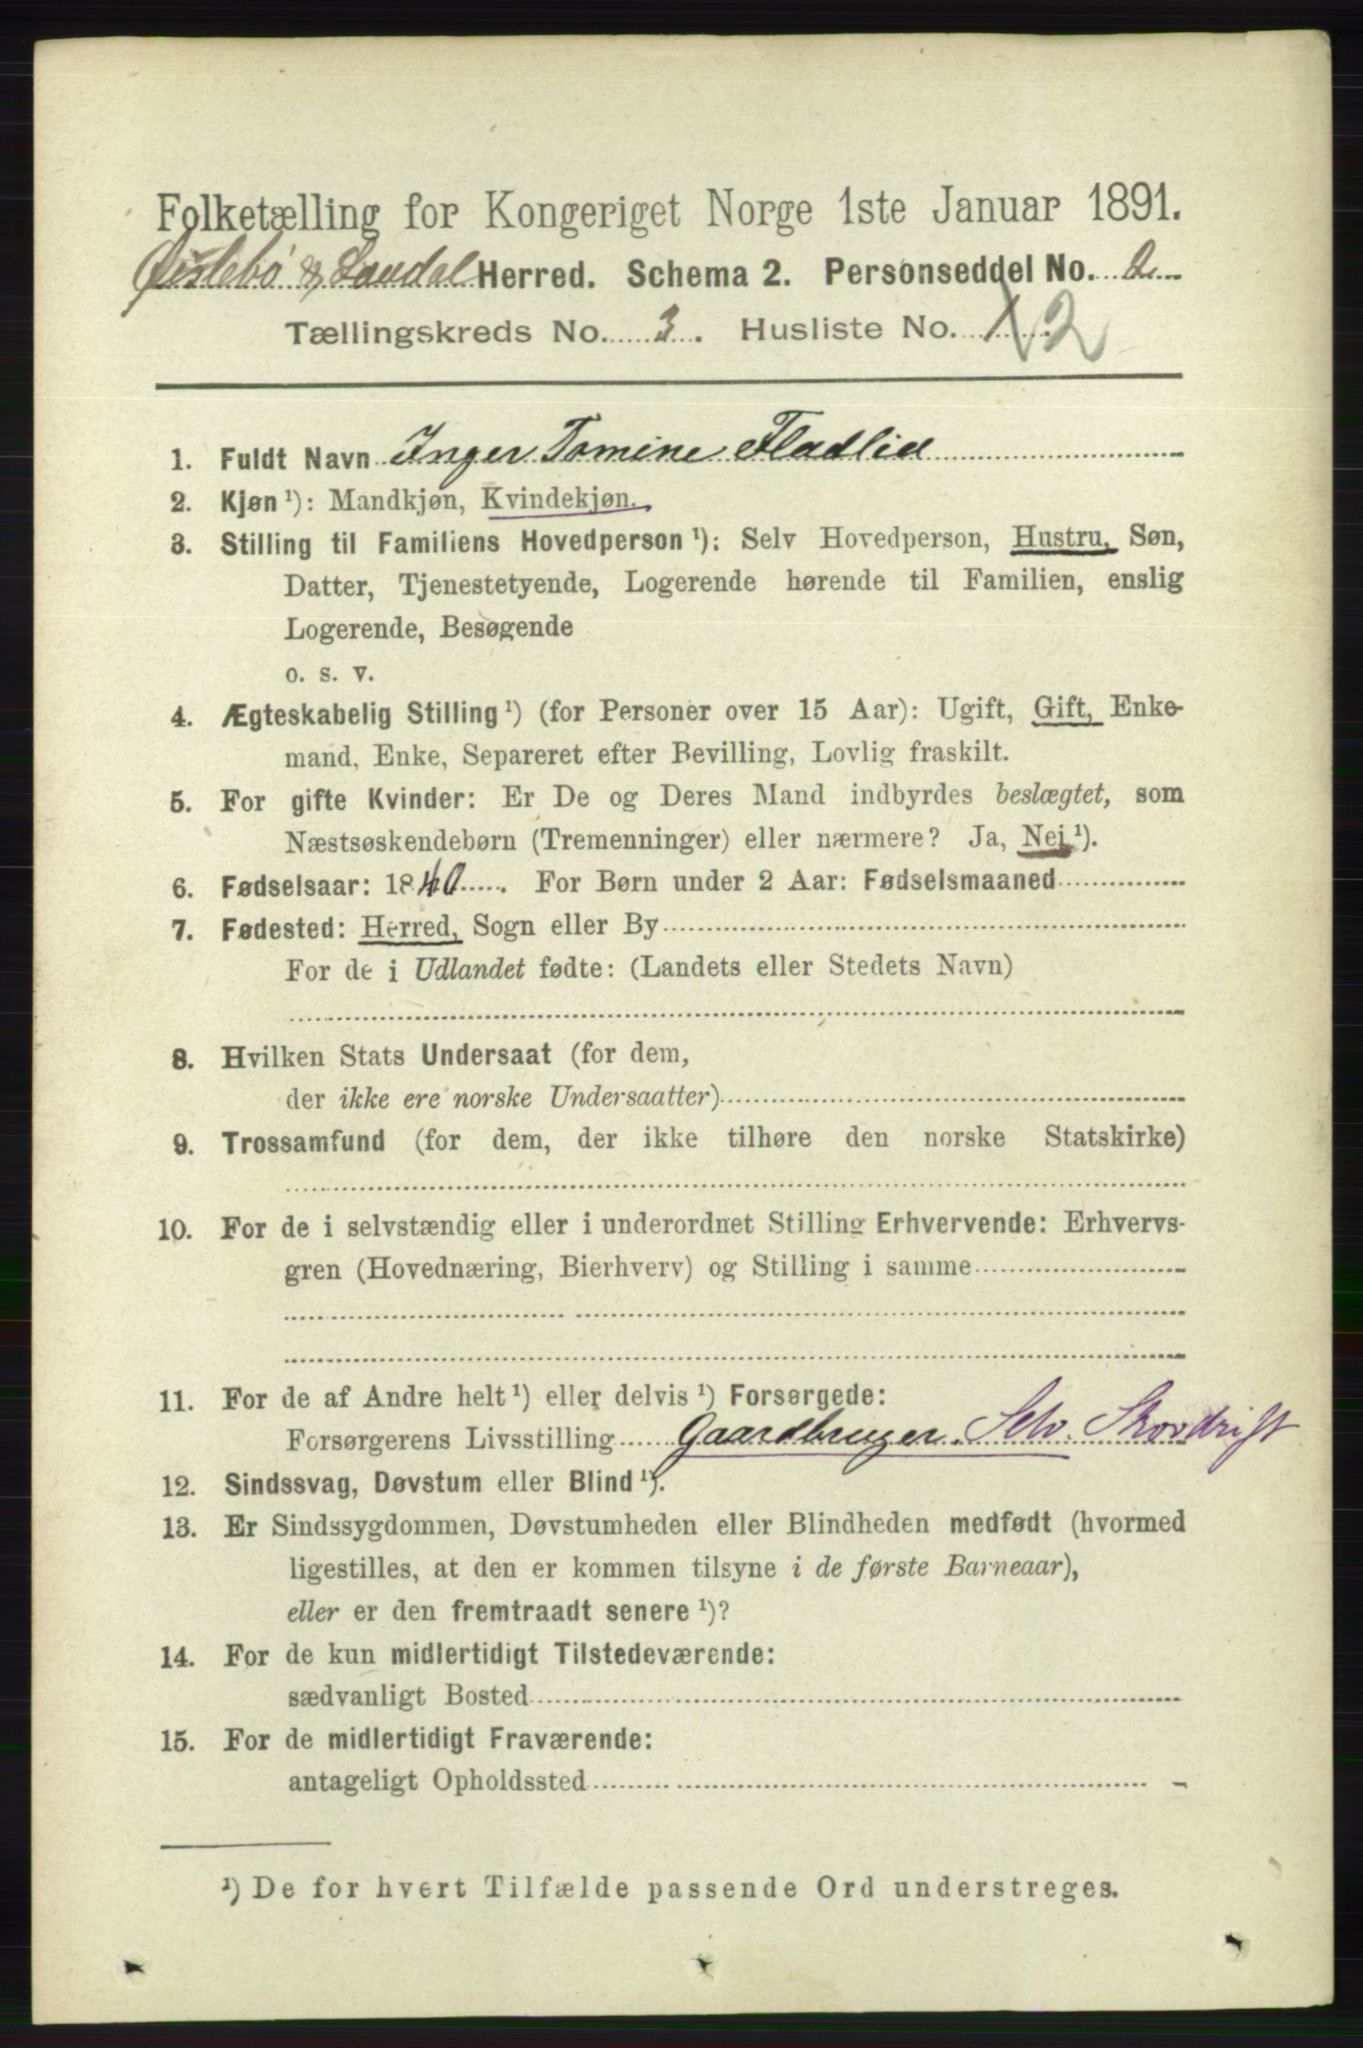 Folketælling for Kongeriget Norge 1ste Januar 1891.
Øislebø & Laudal Herred. Schema 2. Personseddel No. 2
Tællingskreds No. 3. Husliste No. 1 2
1. Fuldt Navn Inger Tomine Fladlid
2. Kjøn ¹): Mandkjøn, Kvindekjøn.
3. Stilling til Familiens Hovedperson ¹): Selv Hovedperson, Hustru, Søn,
Datter, Tjenestetyende, Logerende hørende til Familien, enslig
Logerende, Besøgende
o. s. v.
4. Ægteskabelig Stilling ¹) (for Personer over 15 Aar): Ugift, Gift, Enke-
mand, Enke, Separeret efter Bevilling, Lovlig fraskilt.
5. For gifte Kvinder: Er De og Deres Mand indbyrdes beslægtet, som
Næstsøskendebørn (Tremenninger) eller nærmere? Ja, Nej ¹).
6. Fødselsaar: 1840. For Børn under 2 Aar: Fødselsmaaned
7. Fødested: Herred, Sogn eller By
For de i Udlandet fødte: (Landets eller Stedets Navn)
8. Hvilken Stats Undersaat (for dem,
der ikke ere norske Undersaatter)
9. Trossamfund (for dem, der ikke tilhøre den norske Statskirke)
10. For de i selvstændig eller i underordnet Stilling Erhvervende: Erhvervs-
gren (Hovednæring, Bierhverv) og Stilling i samme
11. For de af Andre helt ¹) eller delvis ¹) Forsørgede:
Forsørgerens Livsstilling Gaardbruger. Selv. Skovdrift
12. Sindssvag, Døvstum eller Blind ¹).
13. Er Sindssygdommen, Døvstumheden eller Blindheden medfødt (hvormed
ligestilles, at den er kommen tilsyne i de første Barneaar),
eller er den fremtraadt senere ¹)?
14. For de kun midlertidigt Tilstedeværende:
sædvanligt Bosted
15. For de midlertidigt Fraværende:
antageligt Opholdssted
¹) De for hvert Tilfælde passende Ord understreges.